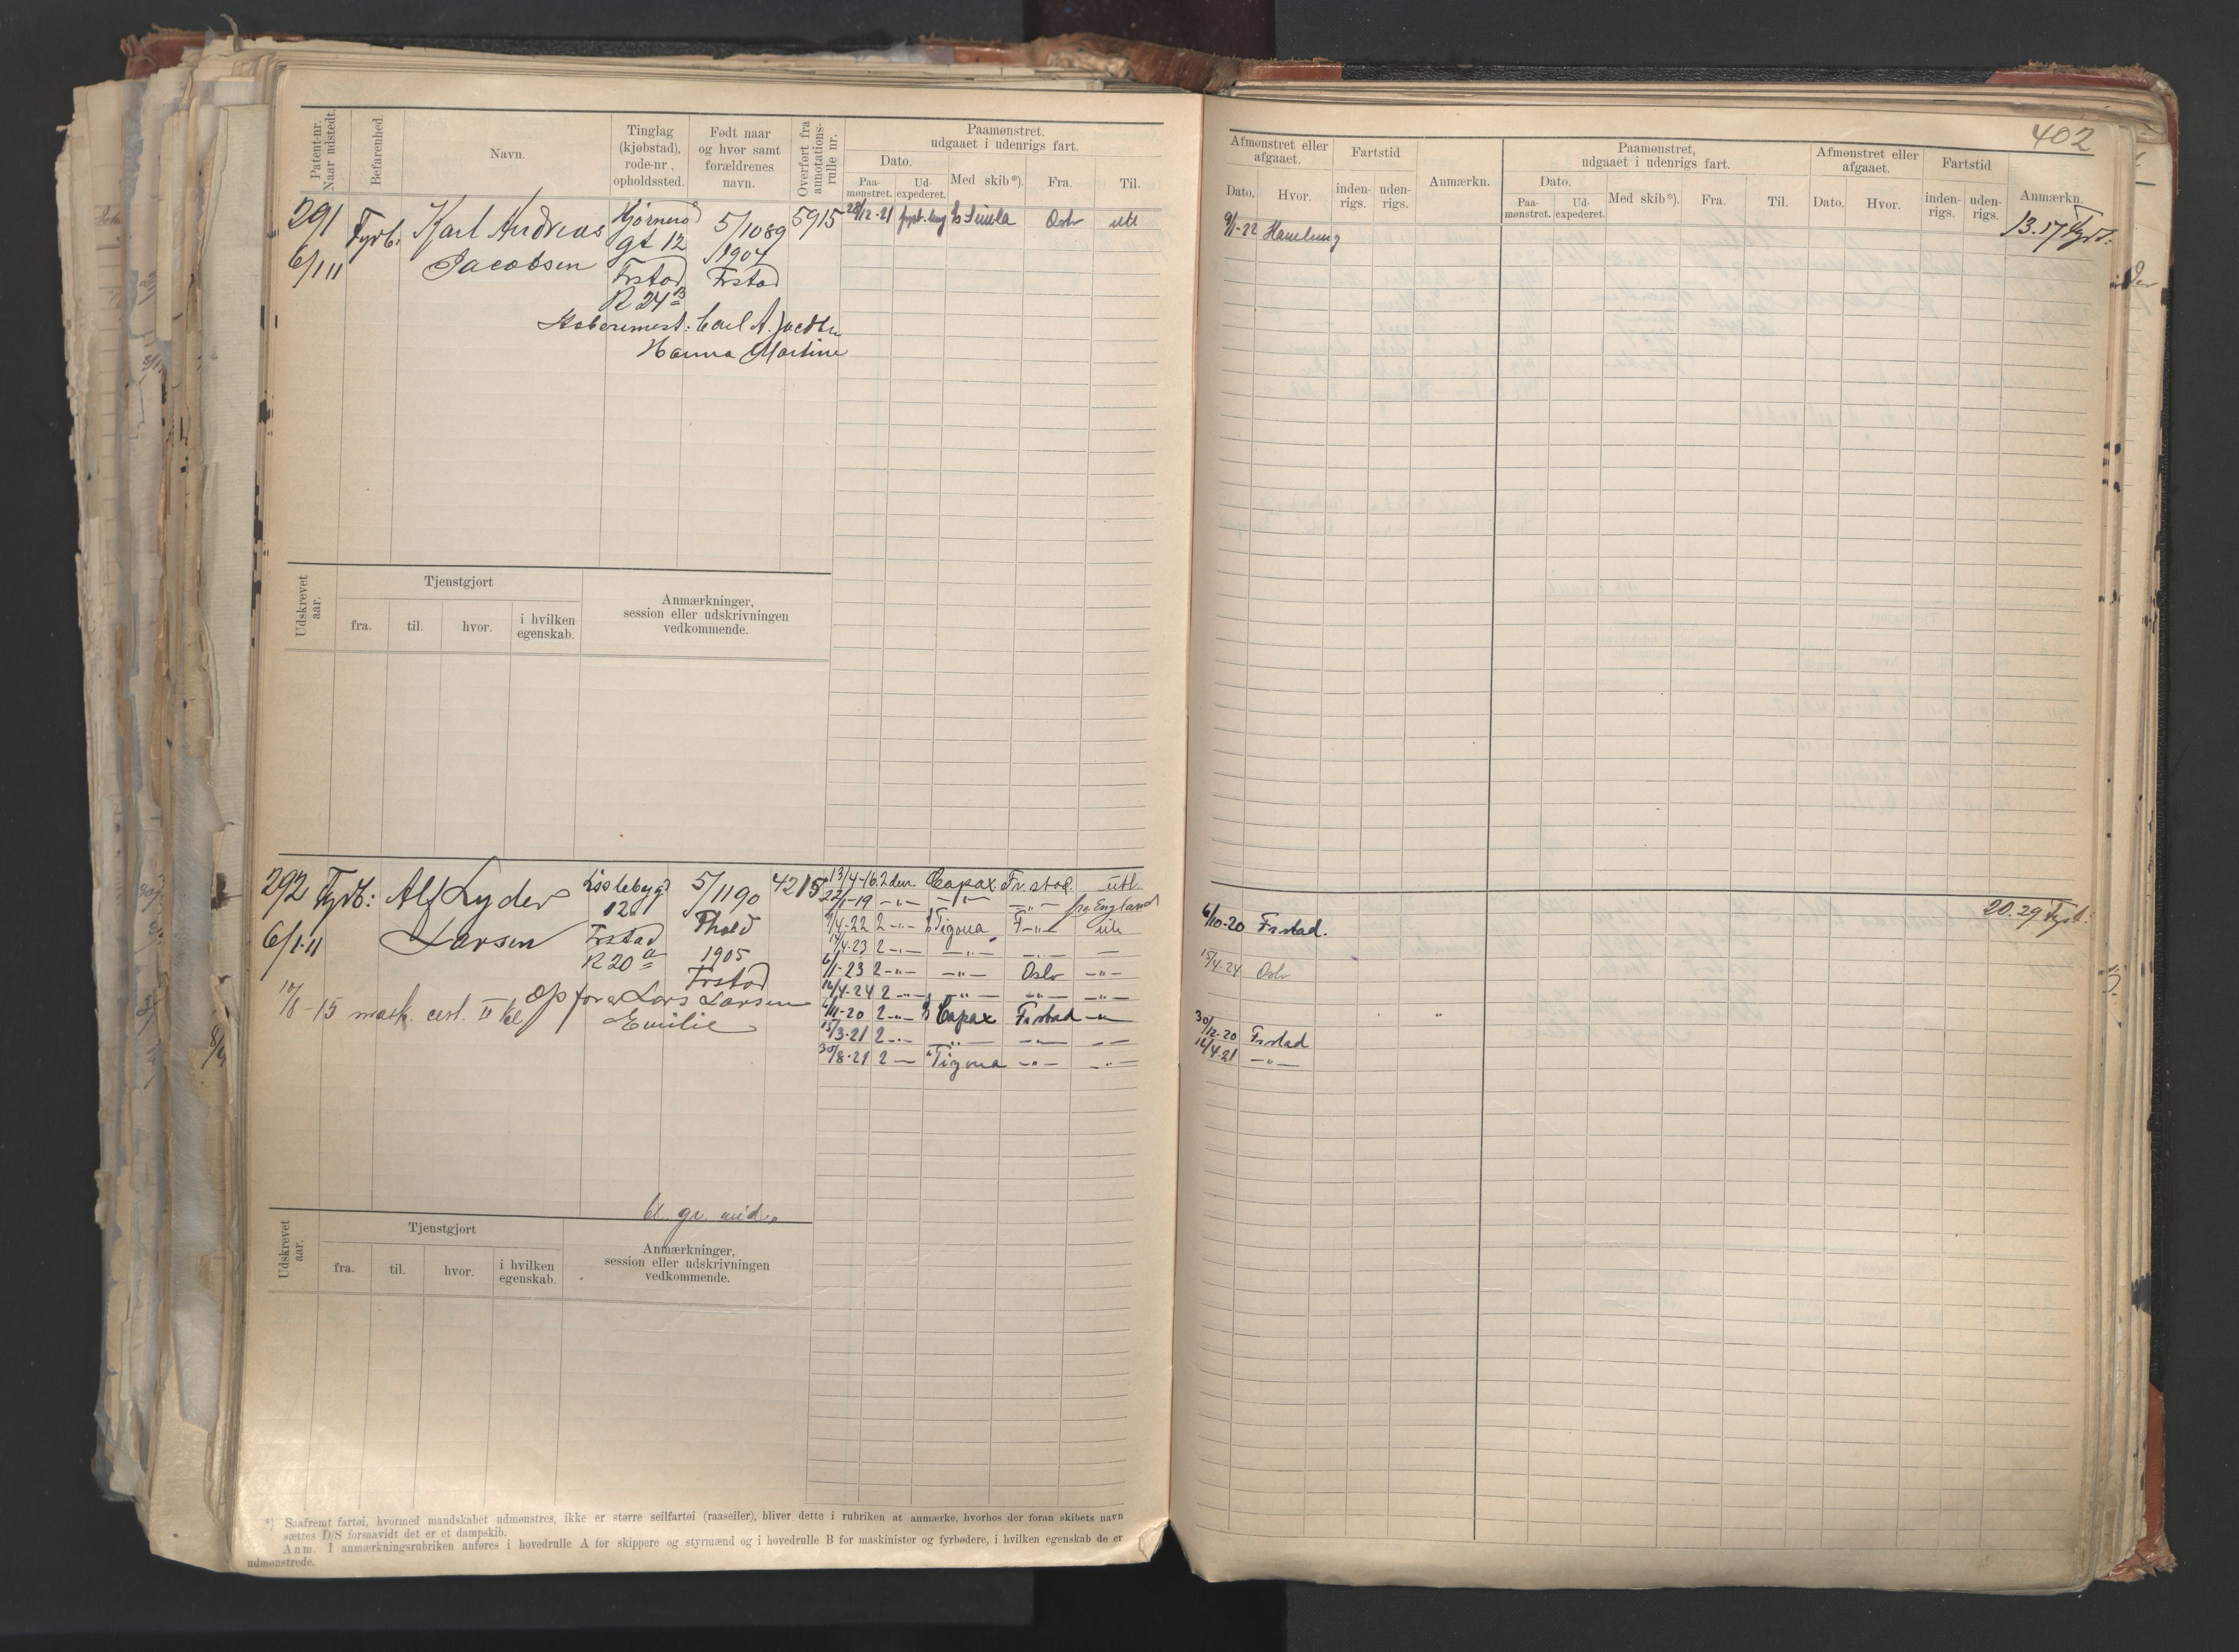 402
Patent-nr. Naar udstedt.
Befarenhed.
Navn.
Tinglag (kjøbstad), rode-nr., opholdssted.
Født naar og hvor samt forældrenes navn.
Overført fra annotations-rulle nr.
Paamønstret, udgaaet i udenrigs fart.
Dato.
Paa-mønstret.
Ud-expederet.
Med skib*).
Fra.
Til.
291 Fyrb: Karl Andreas Hjørnerø 5/10 89 5915 28/12-21 Simla Oslo utl
gt 12 1904
6/1 11 Jacobsen Frstad Frstad
R 24 B
Carl A. Jacobsen
Hanna Martine
Udskrevet aar.
Tjenstgjort
fra.
til.
hvor.
i hvilken egenskab.
Anmærkninger, session eller udskrivningen vedkommende.
292 Fyrb: Alf Lyder 5/11 90 4215 13/4-16 2den. Capax Fr.stad. utl.
12 22/1-19 -"- -"- -"- fra England
6/1-11 Larsen Frstad Thold 4-22 2-"- Tigona F-"- utl
R 20 a 1905 4-23 2-"- -"- -"- —
Frstad 1-23 2-"- -"- Oslo -"-
4-24 2-"- -"- -"- -"-
10/8-15 mask. cert. II kl Lars Larsen 6/11-20 2-"- Capax Frstad -"-
Emilie 15/3-21 2-"- -"- -"- -"-
30/8-21 2— Tigona -"- -"-
Udskrevet aar.
Tjenstgjort
fra.
til.
hvor.
i hvilken egenskab.
Anmærkninger, session eller udskrivningen vedkommende.
*) Saafremt fartøi, hvormed mandskabet udmønstres, ikke er større seilfartøi (raaseiler), bliver dette i rubriken at anmærke, hvorhos der foran skibets navn
sættes D/S forsaavidt det er et dampskib.
Anm. I anmærkningsrubriken anføres i hovedrulle A for skippere og styrmænd og i hovedrulle B for maskinister og fyrbødere, i hvilken egenskab de er
udmønstrede.
Afmønstret eller afgaaet.
Dato.
Hvor.
Fartstid
inden-rigs.
uden-rigs.
Anmærkn.
Paamønstret, udgaaet i udenrigs fart.
Dato.
Paa-mønstret.
Ud-expederet.
Med skib*).
Fra.
Til.
Afmønstret eller afgaaet.
Dato.
Hvor.
Fartstid
inden-rigs.
uden-rigs.
Anmærkn.
9/1-22 Hamburg 13.17 Fyrb.
20.29 Fyrb:
6/10-20 Frstad.
15/4.24 Oslo
30/12-20 Frstad
16/4.21 -"-